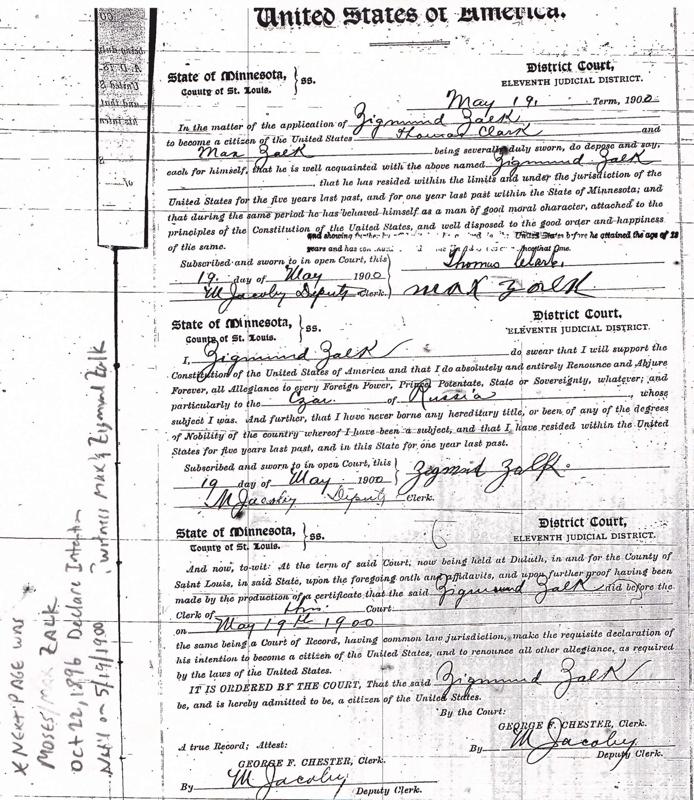 United States of America.
State of Minnesota,
County of St. Louis.
ss.
District Court,
ELEVENTH JUDICIAL DISTRICT.
May 19, Term, 1900
In the matter of the application of Zigmund Zalk
to become a citizen of the United States Thomas Clark and
Max Zalk being severally duly sworn, do depose and say,
each for himself, that he is well acquainted with the above named Zigmund Zalk
that he has resided within the limits and under the jurisdiction of the
United States for five years last past, and for one year last past within the State of Minnesota; and
that during the same period he has behaved himself as a man of good moral character, attached to the
principles of the Constitution of the United States, and well disposed to the good order and happiness
of the same.
and showing United States before he attained the age of 18
years and has
Subscribed and sworn to in open Court, this
19. day of May 1900
M Jacoby Deputy Clerk.
Thomas Clark,
Max Zalk
State of Minnesota,
County of St. Louis.
ss.
District Court,
ELEVENTH JUDICIAL DISTRICT.
I, Zigmund Zalk do swear that I will support the
Constitution of the United States of America and that I do absolutely and entirely Renounce and Abjure
Forever, all Allegiance to every Foreign Power, Prince, Potentate, State or Sovereignty, whatever; and
particularly to the Czar of Russia, whose
subject I was. And further, that I have never borne any hereditary title, or been of any of the degrees
of Nobility of the country whereof I have been a subject, and that I have resided within the United
States for five years last past, and in this State for one year last past.
Subscribed and sworn to in open Court, this
19 day of May 1900
M Jacoby Deputy Clerk.
Zigmund Zalk.
State of Minnesota,
County of St. Louis.
ss.
6
District Court,
ELEVENTH JUDICIAL DISTRICT.
And now, to-wit: At the term of said Court, now being held at Duluth, in and for the County of
Saint Louis, in said State, upon the foregoing oath and affidavits, and upon further proof having been
made by the production of a certificate that the said Zigmund Zalk did before the
Clerk of this Court
on May 19th 1900
the same being a Court of Record, having common law jurisdiction, make the requisite declaration of
his intention to become a citizen of the United States, and to renounce all other allegiance, as required
by the laws of the United States.
IT IS ORDERED BY THE COURT, That the said Zigmund Zalk
be, and is hereby admitted to be, a citizen of the United States.
By the Court:
GEORGE F. CHESTER, Clerk.
By M Jacoby
Deputy Clerk.
A true Record; Attest:
GEORGE F. CHESTER, Clerk.
By M Jacoby
Deputy Clerk.
* NEXT PAGE WAS
MOSES/MAX ZALK
OCT 22, 1896 Declare Intention
on 5/19/1900 witness MAX & Zigmund Zalk